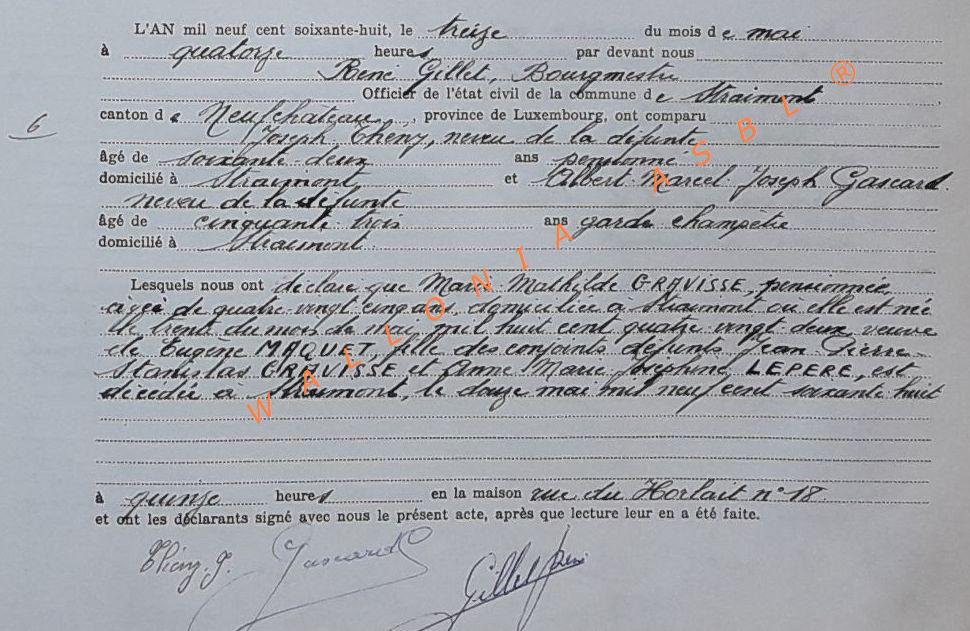 L'AN mil neuf cent soixante-huit, le treize du mois de mai
à quatorze heures par devant nous
René Gillet, Bourgmestre
Officier de l'état civil de la commune de Straimont,
canton de Neufchateau, province de Luxembourg, ont comparu
6
Joseph Thény, neveu de la défunte
âgé de soixante-deux ans pensionné
domicilié à Straimont et Albert Marcel Joseph Gascard.
neveu de la défunte
âgé de cinquante trois ans garde champêtre
domicilié à Straimont
Lesquels nous ont déclaré que Marie Mathilde GRAVISSE, pensionnée
âgée de quatre vingt cinq ans, domiciliée à Straimont où elle est née
le trente du mois de mai, mil huit cent quatre vingt deux, veuve
de Eugène MAQUET, fille des conjoints défunts Jean Pierre
Stanislas GRAVISSE et Anne Marie Joséphine LEPERE, est
décédée à Straimont, le douze mai mil neuf cent soixante huit
à quinze heures en la maison rue du Horlait n° 18
et ont les déclarants signé avec nous le présent acte, après que lecture leur en a été faite.
Thény. J. Gascard Gillet René
WALLONIA ASBL ®